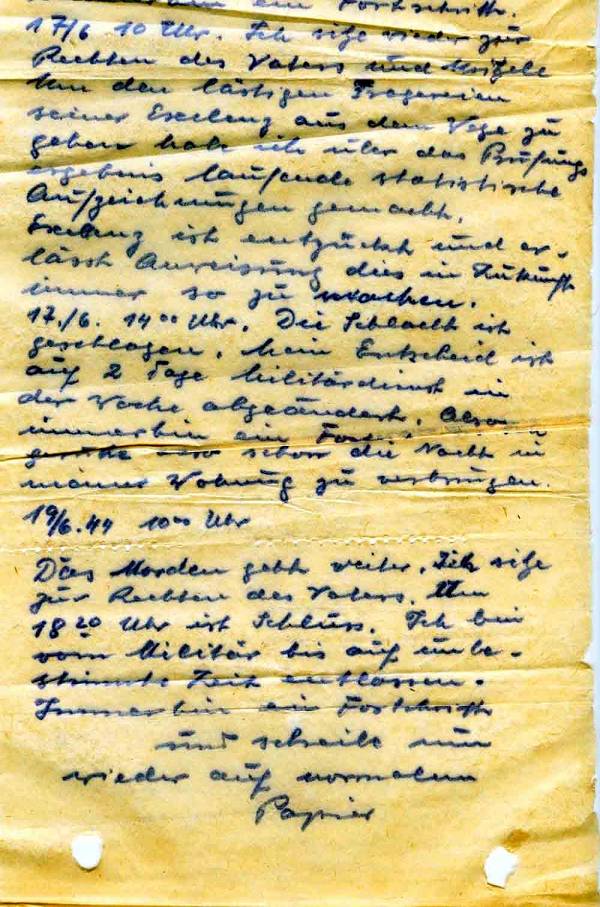 ein Fortschritt.
17/6 10 Uhr. Ich sitze wieder zur
Rechten des Vaters und
Um den lästigen Fragereien
seiner Exelenz aus dem Wege zu
gehen hab ich über das Prüfungs
ergebnis laufende statistische
Aufzeichnungen gemacht.
Exelenz ist entzückt und er-
lässt Anweisung dies in Zukunft
immer so zu machen.
17./6. 14 00 Uhr. Die Schlacht ist
geschlagen. Mein Entscheid ist
auf 2 Tage Militärdienst in
der Woche abgeändert. Also
immerhin ein
schon die Nacht in
meiner Wohnung zu verbringen.
19/6.44 10 00 Uhr
Das Morden geht weiter. Ich sitze
zur Rechten des Vaters. Um
18 20 Uhr ist Schluss. Ich bin
vom Militär bis auf unbe-
stimmte Zeit entlassen.
Immerhin ein Fortschritt
und schreibe nun
wieder auf normalem
Papier